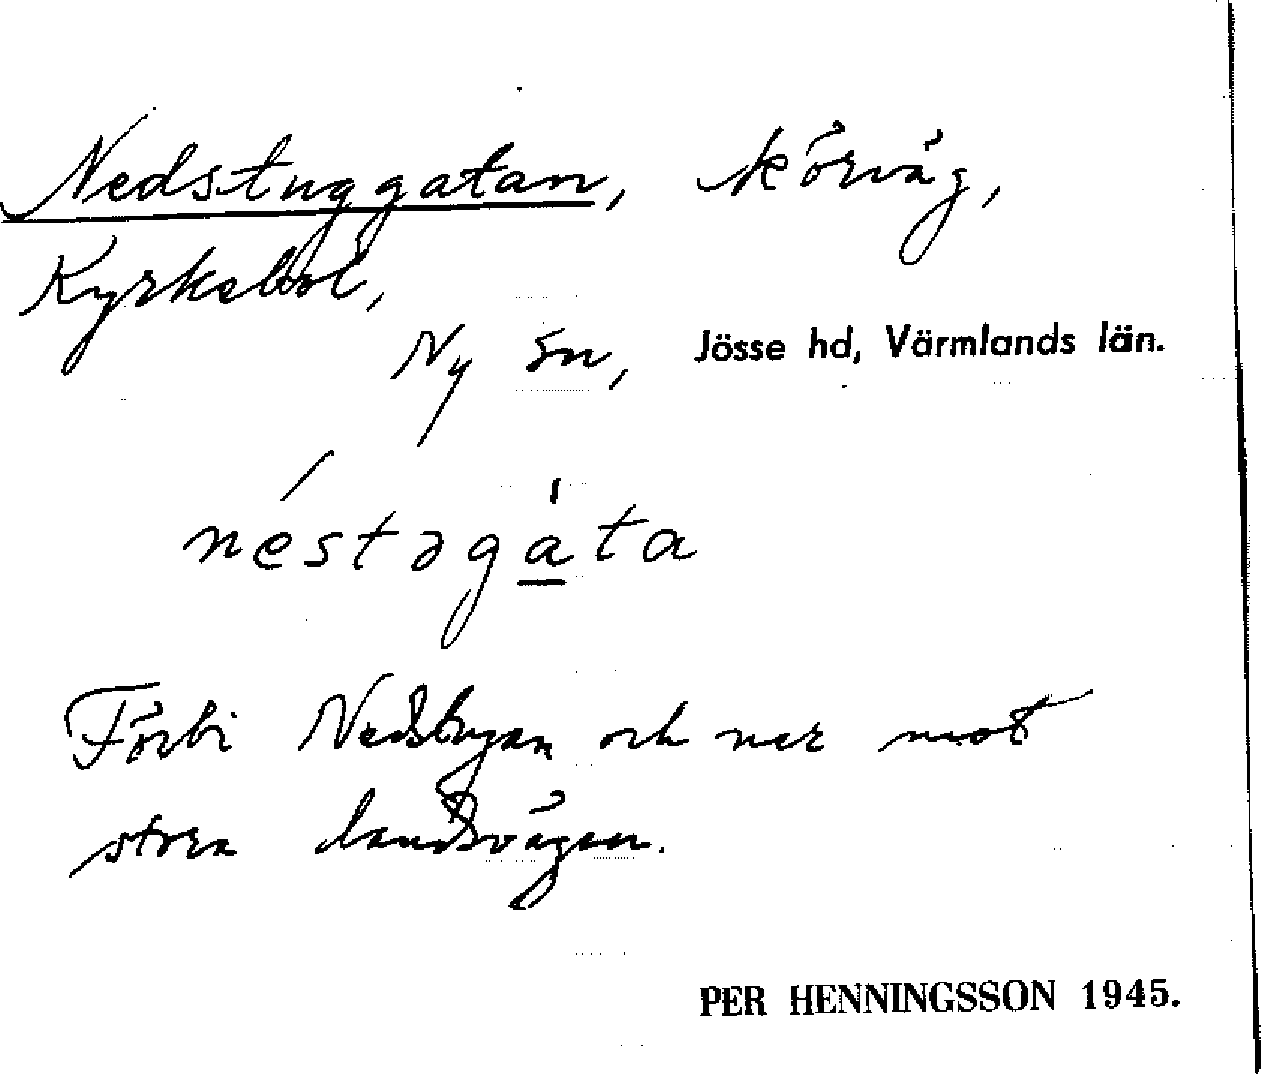 Nedstuggatan, körväg,
Kyrkebol,
Ny sn, Jösse hd, Värmlands län.
néstəga̱̍ta
Förbi Nedstugan och ner mot
stora landsvägen.
PER HENNINGSSON 1945.